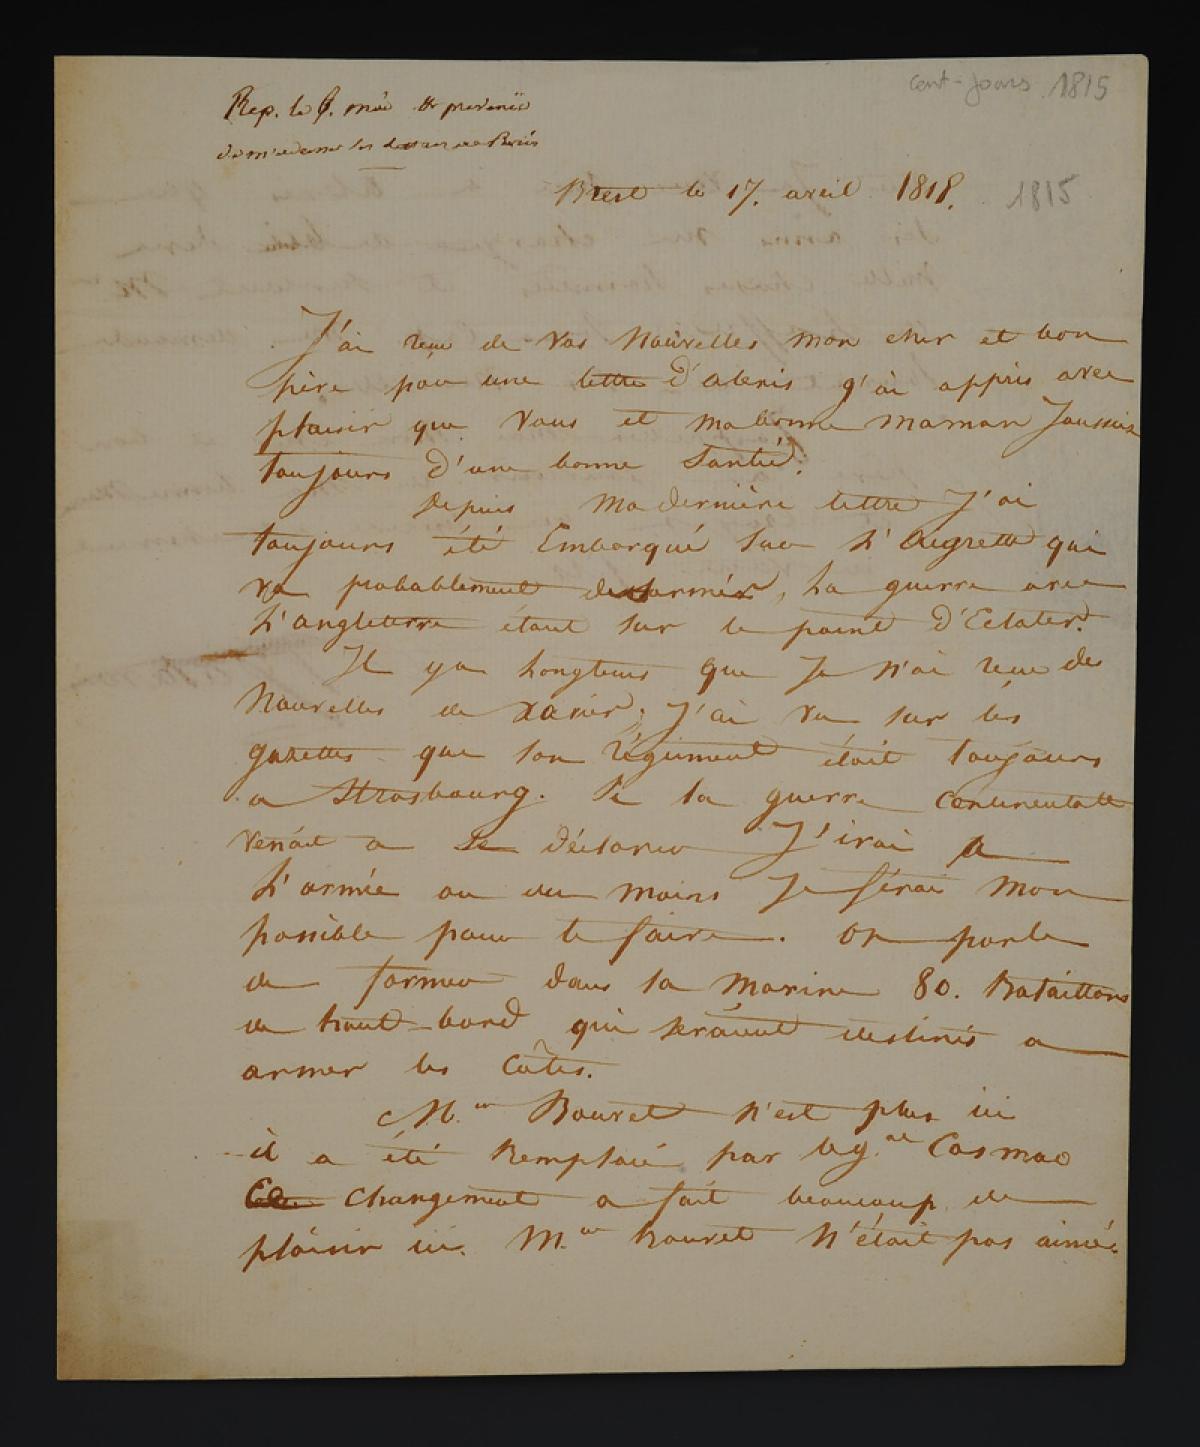 cent-Jours 1815
Rep. le 9. mai
de m'adresser les lettres a Paris
Brest le 17. avril 1818.
1815
J'ai reçu de Vos Nouvelles mon cher et bon
père par une lettre d'alexis j'ai appris avec
plaisir que Vous et ma bonne maman Jouissiez
toujours d'une bonne Santé.
depuis Ma dernière lettre J'ai
toujours été Embarqué Sur L'Aigrette qui
va probablement desarmér, La guerre avec
L'angleterre étant sur le point d'Eclater.
Il y a Longtems que Je n'ai reçu des
Nouvelles de xavier; J'ai vu sur les
gazettes que son Régiment était toujours
a Strasbourg. Si la guerre continentale
venait a Se déclarer J'irai a
L'armée ou du moins Je ferai mon
possible pour le faire. on parle
de former dans la Marine 80. Bataillons
de haut-bord qui seraient destinés a
armer les Côtes.
M.ur Bouvet n'est plus ici
il a été Remplacé par le g.al Cosmao
Ce changement a fait beaucoup de
plaisir ici. M.ur bouvet N'était pas aimé.